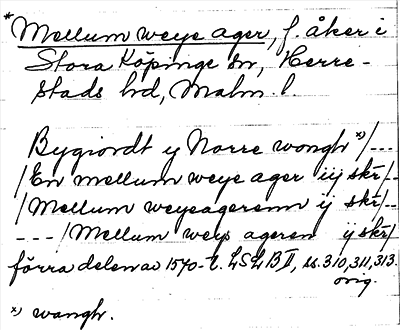 * Mellum weye ager, f. åker i
Stora Köpinge sn, Herre-
stads hd, Malm. l.
Bygiordt y Norre wongh *) / ---
/ En mellum weye ager iij skr / --
/ Mellum weyeagerenn ij skr / --
--- / Mellum weys ageren ij skr /
förra delen av 1570-t. LSLB II, ss. 310, 311, 313.
orig.
*) wangh.